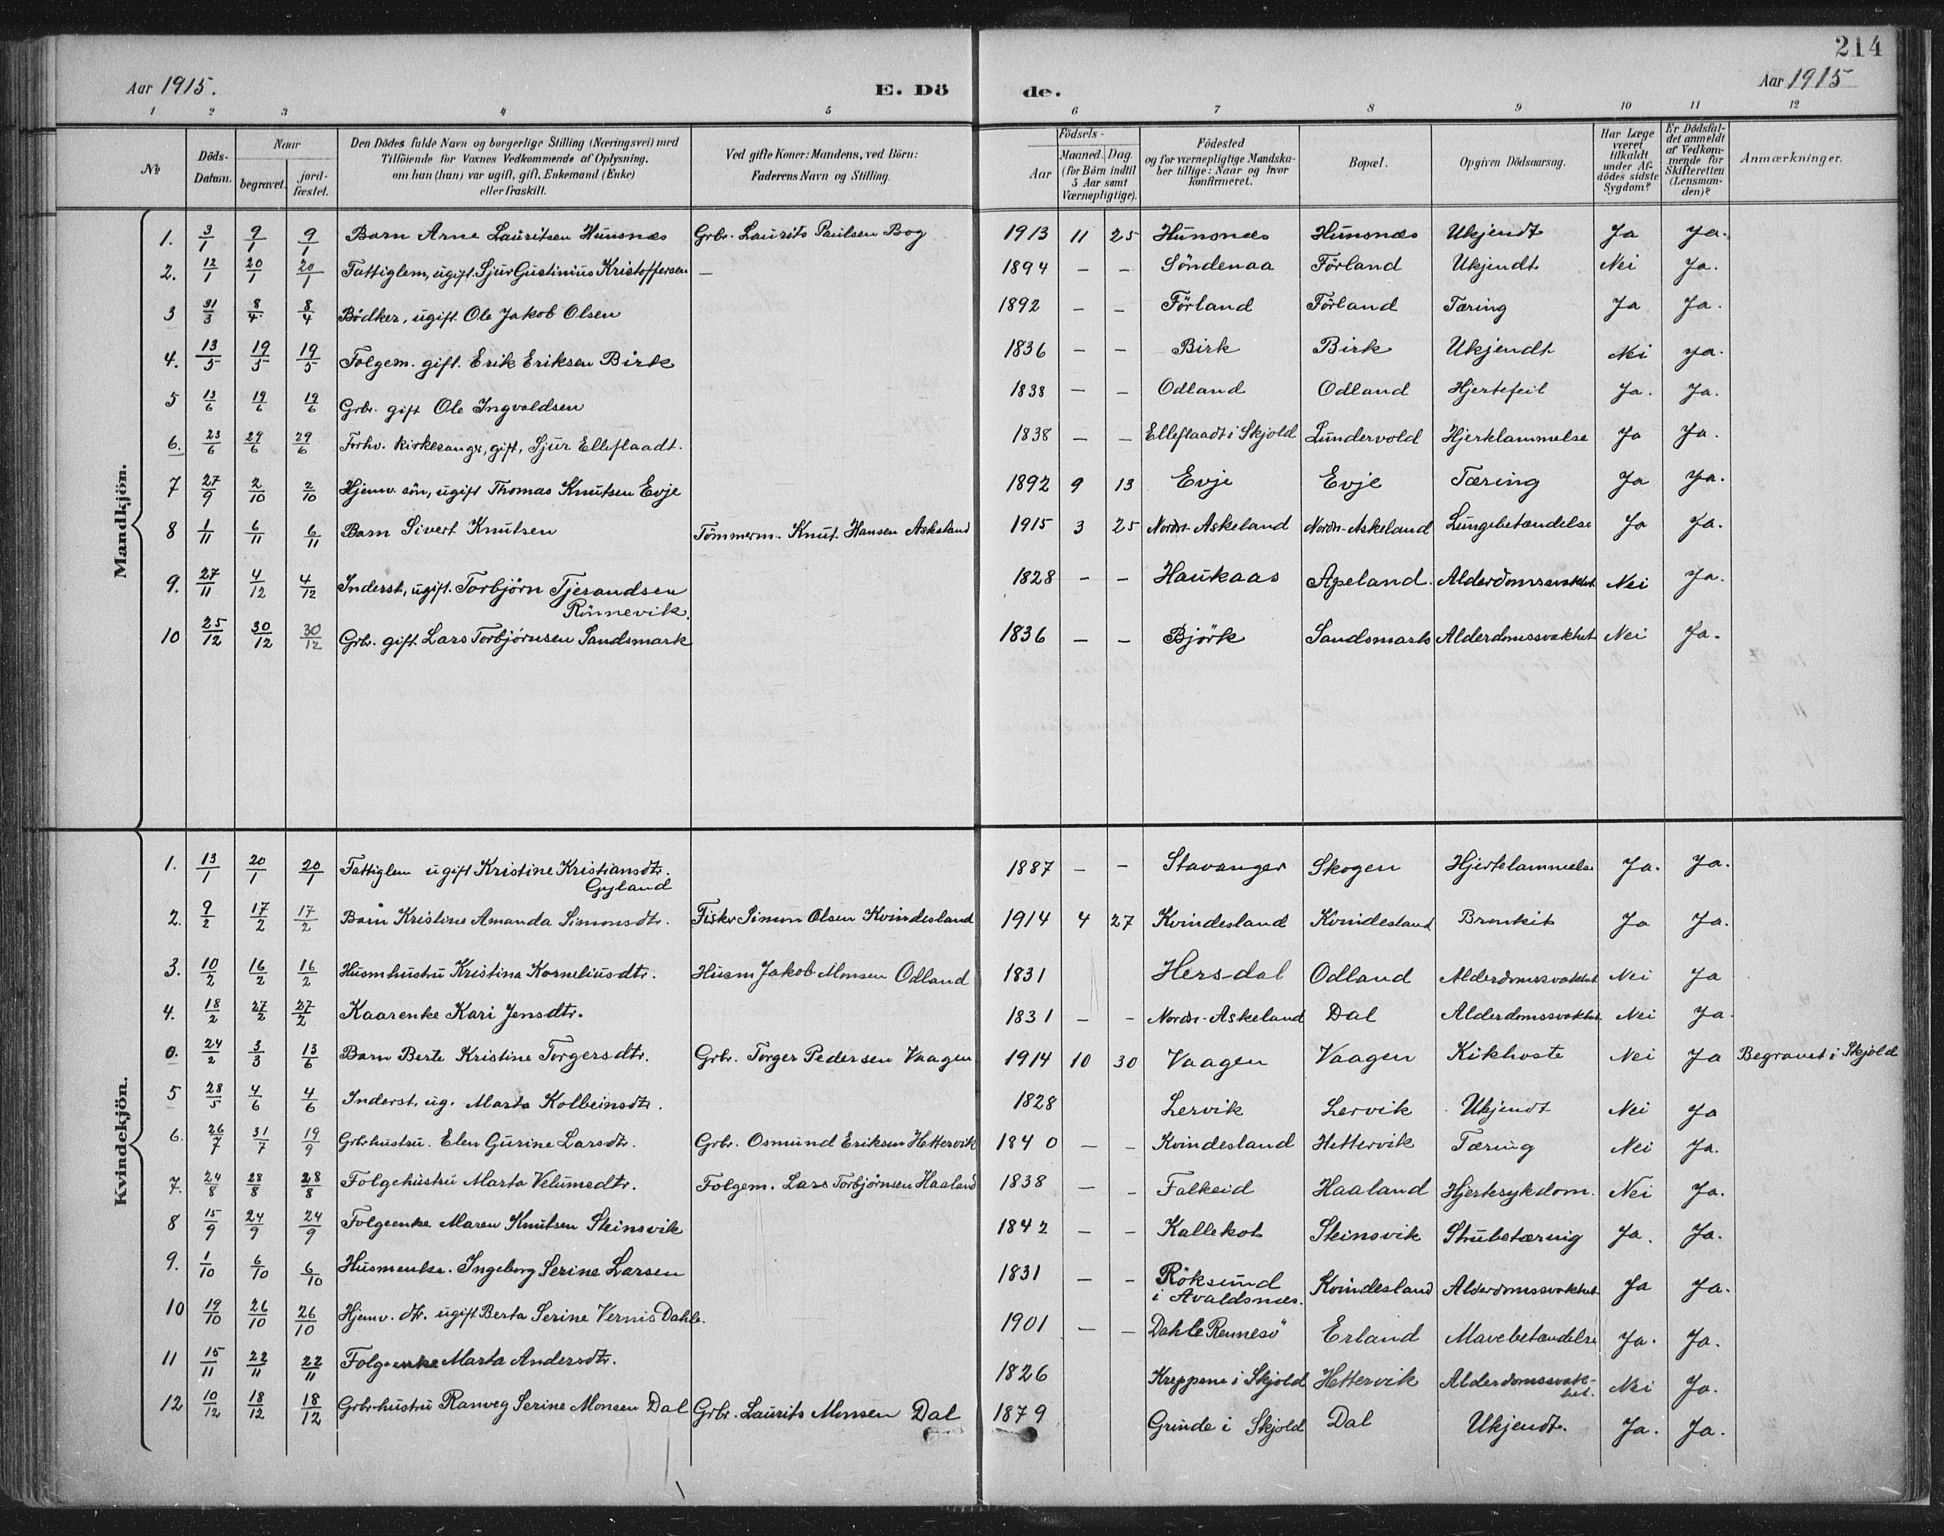 214
Aar 1915.
E. Dö
de.
Aar 1915
1 2 3 4 5 6 7 8 9 10 11 12
No
Döds-Datum.
Naar
begravet.
jord-fæstet.
Den Dödes fulde Navn og borgerlige Stilling (Næringsvei) med
Tilföiende for Voxnes Vedkommende af Oplysning,
om han (hun) var ugift, gift, Enkemand (Enke)
eller fraskilt.
Ved gifte Koner: Mandens, ved Börn:
Faderens Navn og Stilling.
Födsels-
Aar
Maaned. Dag.
(for Börn indtil
5 Aar samt
Værnepligtige).
Födested
og for værnepligtige Mandska-
ber tillige: Naar og hvor
konfirmeret.
Bopæl.
Opgiven Dödsaarsag.
Har Læge
været
tilkaldt
under Af-
dödes sidste
Sygdom?
Er Dödsfal-
det anmeldt
af Vedkom-
mende for
Skifteretten
(Lensman-
den)?
Anmærkninger.
Mandkjön.
1. 3/1 9/1 9/1 Barn Arne Lauritsen Hunsnæs Grbr. Laurits Paulsen Bog 1913 11 25 Hunsnæs Hunsnæs Ukjendt Ja Ja.
2. 12/1 20/1 20/1 Fattiglem, ugift. Sjur Gustinius Kristoffersen — 1894 — — Söndenaa Förland Ukjendt Nei Ja.
3 31/3 8/4 8/4 Bödker, ugift. Ole Jakob Olsen 1892 — — Förland Förland Tæring Ja Ja.
4. 13/5 19/5 19/5 Folgem. gift. Erik Eriksen Birk 1836 — — Birk Birk Ukjendt Nei Ja.
5 13/6 19/6 19/6 Grbr. gift Ole Ingvaldsen 1838 — — Odland Odland Hjertefeil Ja. Ja.
6. 23/6 29/6 29/6 Forhv. kirkesangr, gift, Sjur Elleflaadt. 1838 — — Elleflaadt i Skjold Lundervold Hjertelammelse Ja Ja.
7 27/9 2/10 2/10 Hjemv. sön, ugift Thomas Knutsen Evje 1892 9 13 Evje Evje Tæring Ja Ja.
8 1/11 6/11 6/11 Barn Sivert Knutsen Tömmerm. Knut Hansen Askeland 1915 3 25 Nordr. Askeland Nordr. Askeland Lungebetændelse Ja Ja.
9. 27/11 4/12 4/12 Inderst, ugift. Torbjörn Tjerandsen 1828 — — Haukaas Apeland. Alderdomssvakhet Nei Ja.
Rönnevik.
10 25/12 30/12 30/12 Grbr. gift. Lars Torbjörnsen Sandsmark 1836 — — Björk Sandsmark Alderdomssvakhet Nei Ja.
Kvindekjön.
1. 13/1 20/1 20/1 Fattiglem ugift Kristine Kristiansdtr. 1887 — — Stavanger Skogen Hjertelammelse Ja. Ja.
Gyland
2. 9/2 17/2 17/2 Barn Kristine Amanda Simonsdtr. Fisker Simon Olsen Kvindesland 1914 4 27 Kvindesland Kvindesland Bronkit Ja Ja.
3. 10/2 16/2 16/2 Husmhustru Kristina Korneliusdtr. Husm Jakob Monsen Odland 1831 Hersdal Odland Alderdomssvakhet Nei Ja
4. 18/2 27/2 27/2 Kaarenke Kari Jensdtr. 1831 — — Nordr. Askeland Dal Alderdomssvakhet Nei Ja.
0. 24/2 3/3 13/6 Barn Berte Kristine Torgersdtr. Grbr. Torger Pedersen Vaagen 1914 10 30 Vaagen Vaagen Kikhoste Nei Ja Begravet i Skjold
5 28/5 4/6 4/6 Inderst, ug. Marta Kolbeinsdtr. 1828 Lervik Lervik Ukjendt Nei Ja
6. 26/7 31/7 19/9 Grbrhustru. Elen Gurine Larsdtr. Grbr. Osmund Eriksen Hettervik 1840 — — Kvindesland Hettervik Tæring Nei Ja.
7. 24/8 28/8 28/8 Folgehustru Marta Velumedtr. Folgem. Lars Torbjørnsen Haaland 1838 — — Falkeid Haaland Hjertesykdom. Nei Ja.
8 15/9 24/9 24/9 Folgeenke Maren Knutsen Steinsvik 1842 — — Kallekot Steinsvik Strubetæring Ja. Ja.
9. 1/10 6/10 6/10 Husmenke. Ingeborg Serine Larsen 1831 — — Röksund Kvindesland Alderdomssvakhet Ja Ja.
i Avaldsnes.
10 19/10 26/10 26/10 Hjemv. dtr. ugift Berta Serine Vernis Dahle. 1901 — — Dahle Rennesö Erland Mavebetændelse Ja. Ja.
11 15/11 22/11 22/11 Folgeenke Marta Andersdtr. 1826 Kreppene i Skjold Hettervik Alderdomssvak- Nei Ja.
het.
12 10/12 18/12 18/12 Grbrhustru Ranveg Serine Monsen Dal Grbr. Laurits Monsen Dal 1879 Grinde i Skjold Dal Ukjendt. Ja. Ja.